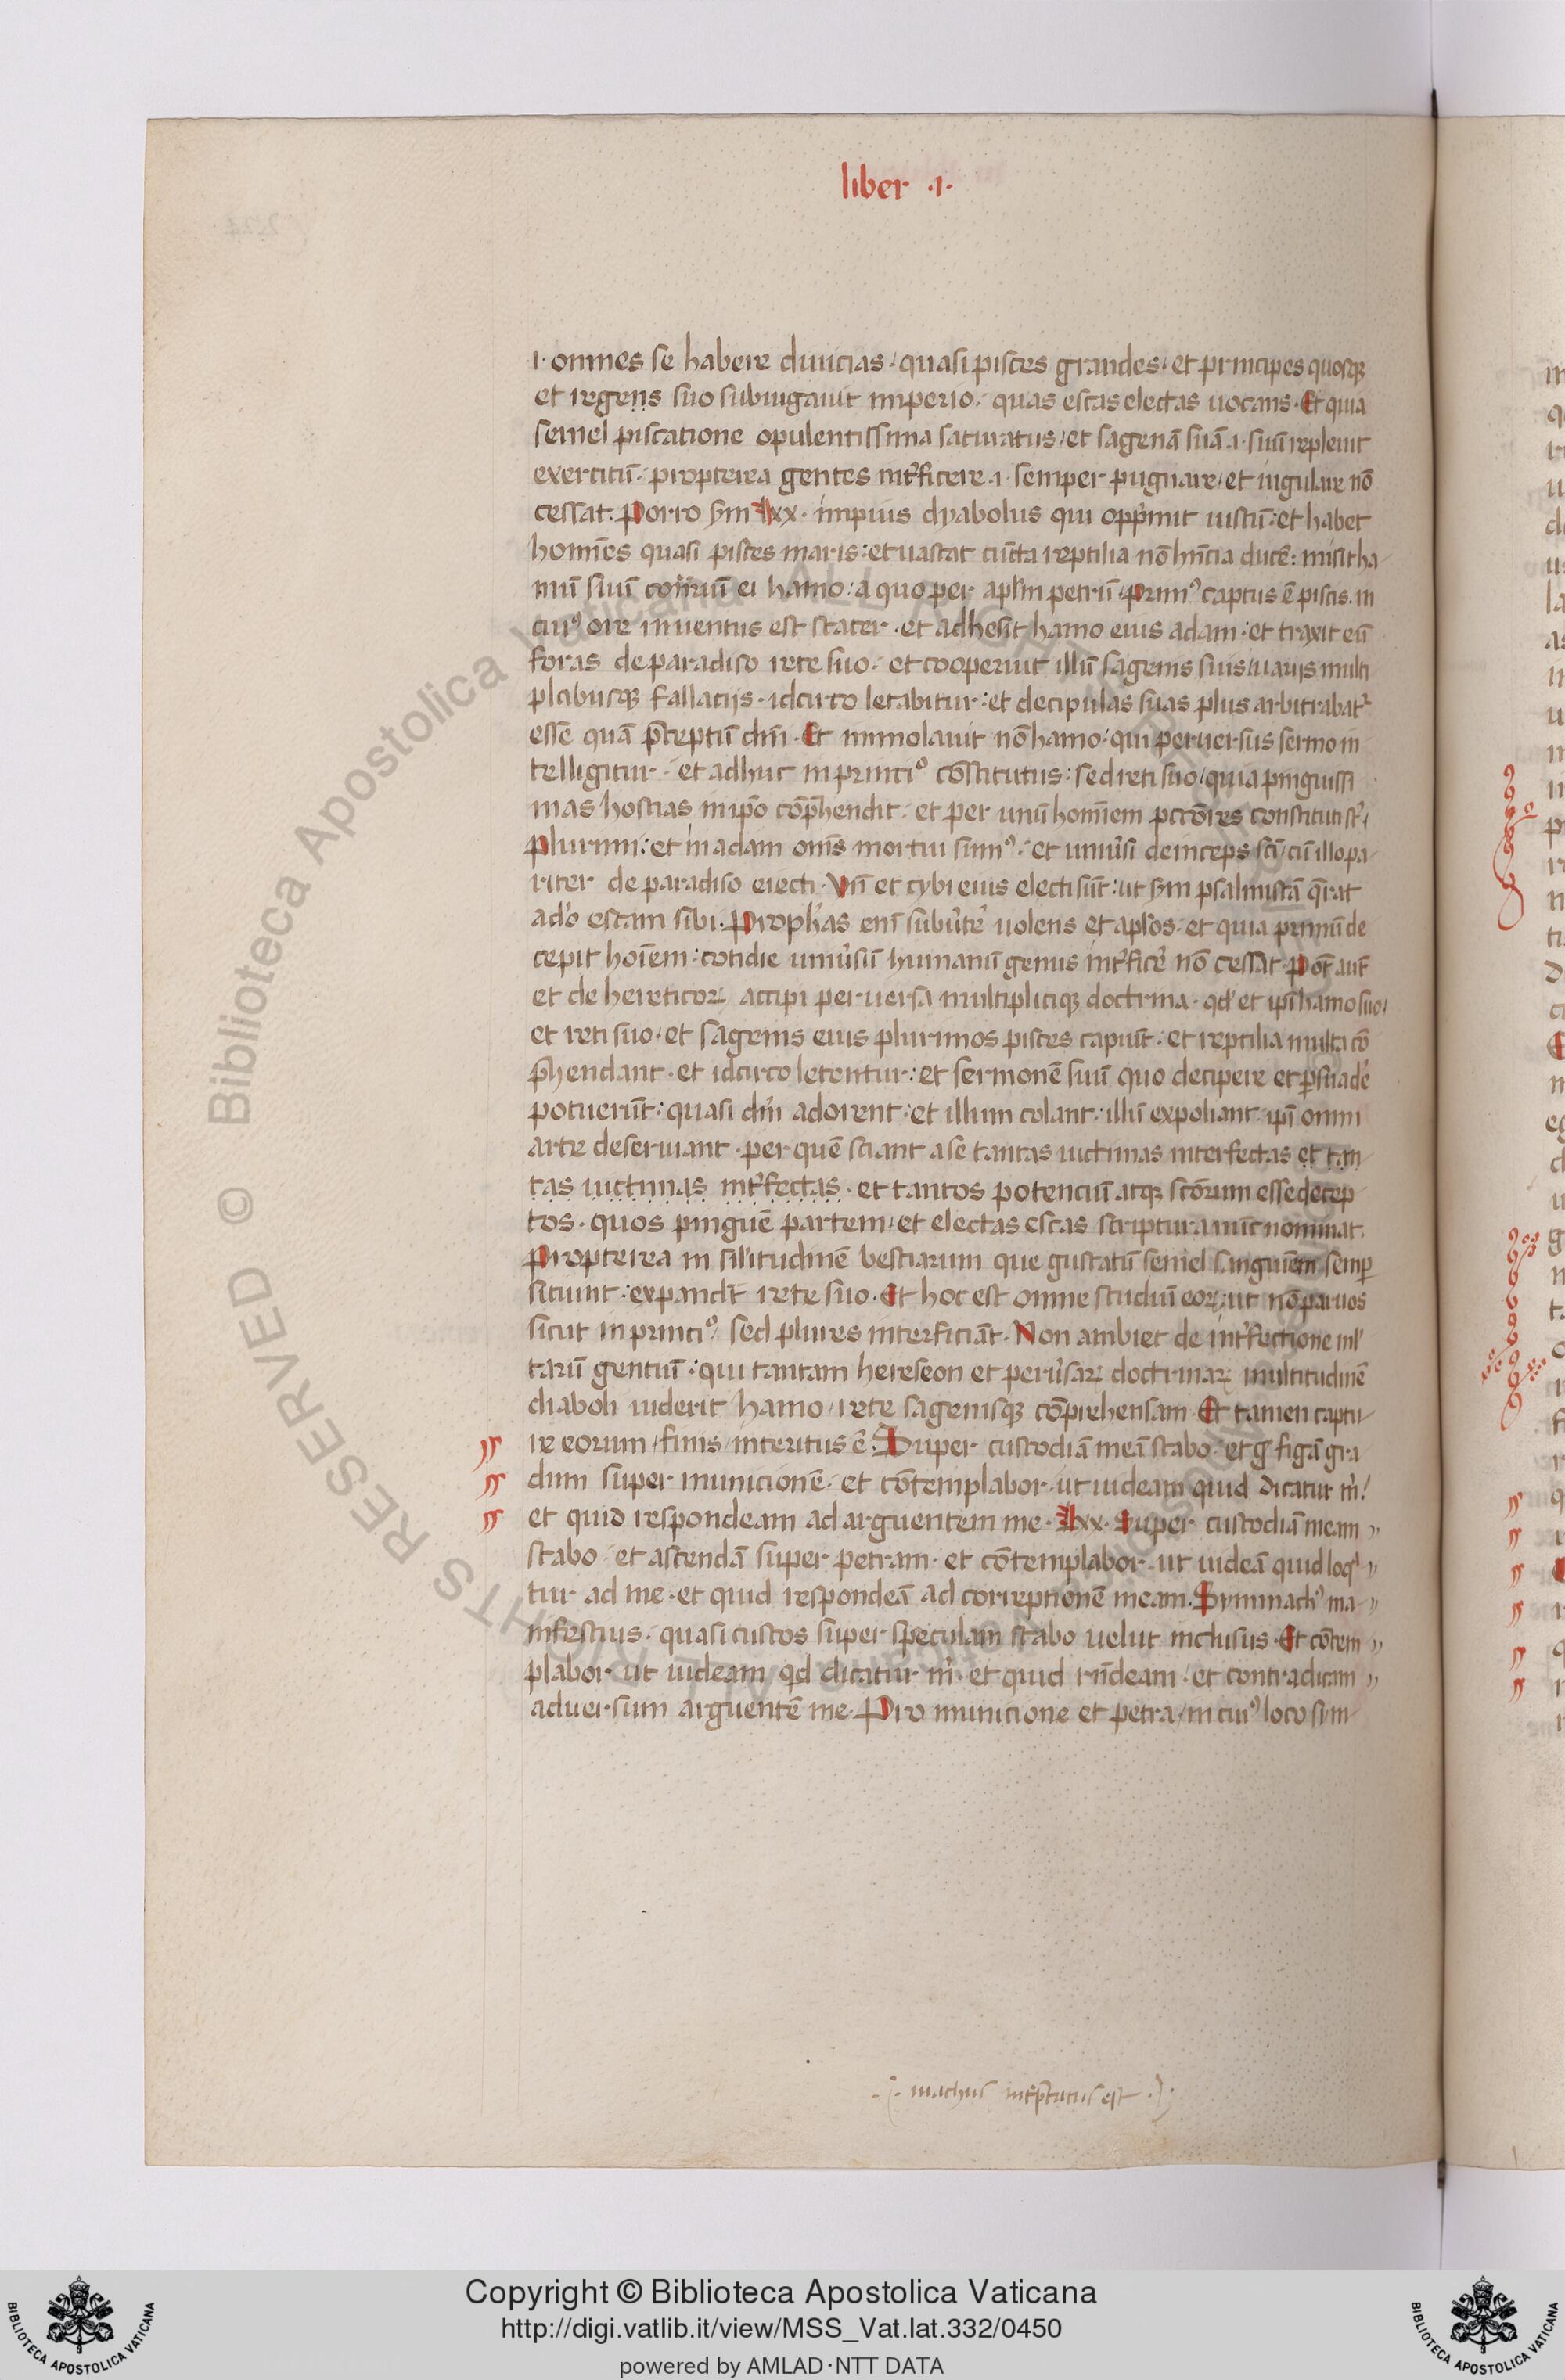 liber .1.
.i. omnes se habere diuicias. quasi pisces grandes. et principes quosqꝫ
et regens suo subiugauit imperio. quas escas electas uocans. Et quia
semel piscatione opulentissima saturatus. et sagenā suā .i. suū repleuit
exercitū. propterea gentes int̄ficere .i. semper pugnare. et iugulare nō
cessat. Porro s̄m lxx. impius dyabolus qui opp̄mit iustū: et habet
homīes quasi pisces maris: et uastat cūcta reptilia nō hn̄cia ducē: misit ha
mū suū ei hamo: a quo per apl̄m petrū. primꝰ captus ē piscis. in
cuiꝰ ore inuentus est stater. et adhesit hamo eius adam: et traxit eū
foras de paradiso rete suo. et cooperuit illū sagenis suis uarijs multi
plicibusqꝫ fallacijs. idcirco letabitur: et decipulas suas plus arbitrabat᷑
esse quā p̄ceptū dn̄i. Et immolauit nō hamo. qui peruersus sermo in
telligitur. et adhuc in principiꝰ cōstitutus: sed reti suo quia pinguissi
mas hostias in ip̄o cōp̄hendit. et per unū hominem pctōres constituti st̄
plurimi: et in adam om̄s mortui sumꝰ. et uniūsi deinceps sc̄i cū illo pa
riter de paradiso eiecti. Vn̄ et cybi eius electi sūt: ut s̄m psalmistā q̄rat
a do escam sibi. Proph̄as eni subūtere uolens et ap̄los. et quia primū de
cepit hoīem: cotidie uniūsū humanū genus int̄ficē nō cessat. Pot̄ aut̄
et de hereticoꝝ accipi peruersa multipliciqꝫ doctrina. qd et ip̄i hamo suo
et reti suo. et sagenis eius plurimos pisces capiūt. et reptilia multa cō
p̄hendant. et idcirco letentur: et sermonē suū quo decipere et ꝑsuadē
potuerūt: quasi dm̄ adorent. et illum colant. illū expoliant ip̄i omni
arte deseruiant. per quē sciant a se tantas uictimas interfectas et tan
tas uictimas int̄fectas. et tantos potenciū atqꝫ sctōrum esse decep
tos. quos pinguē partem. et electas escas scriptura nūc nominat.
Propterea in sil̄itudinē bestiarum que gustatū semel sanguinem semꝑ
sitiunt: expandit rete suo. Et hoc est omne studiū eoꝝ: ut nō paruos
sicut in principiꝰ sed plures interficiāt. Non ambiet de int̄fectione ml̄
tarū gentiū: qui tantam hereseon et perūsaꝝ doctrinaꝝ multitudinē
diaboli uiderit hamo rete sagenisqꝫ cōprehensam. Et tamen captu
re eorum finis interitus ē. Super custodiā meā stabo. et figā gra
dum super municionē. et cōtemplabor. ut uideam quid dicatur m̄.
et quid respondeam ad arguentem me. lxx. Super custodiā meam
stabo et ascendā super petram. et cōtemplabor. ut uideā quid loqͥ
tur ad me. et quid respondeā ad correptionē meam. Symmachꝰ ma
nifestius. quasi custos super speculam stabo uelut inclusus. Et cōtem
plabor ut uideam qd dicatur m̄. et quid rn̄deam. et contradicam
aduersum arguentē me. Pro municione et petra in cuiꝰ loco sim
machus int̄p̄tatus est
Copyright © Biblioteca Apostolica Vaticana
http://digi.vatlib.it/view/MSS_Vat.lat.332/0450
powered by AMLAD·NTT DATA